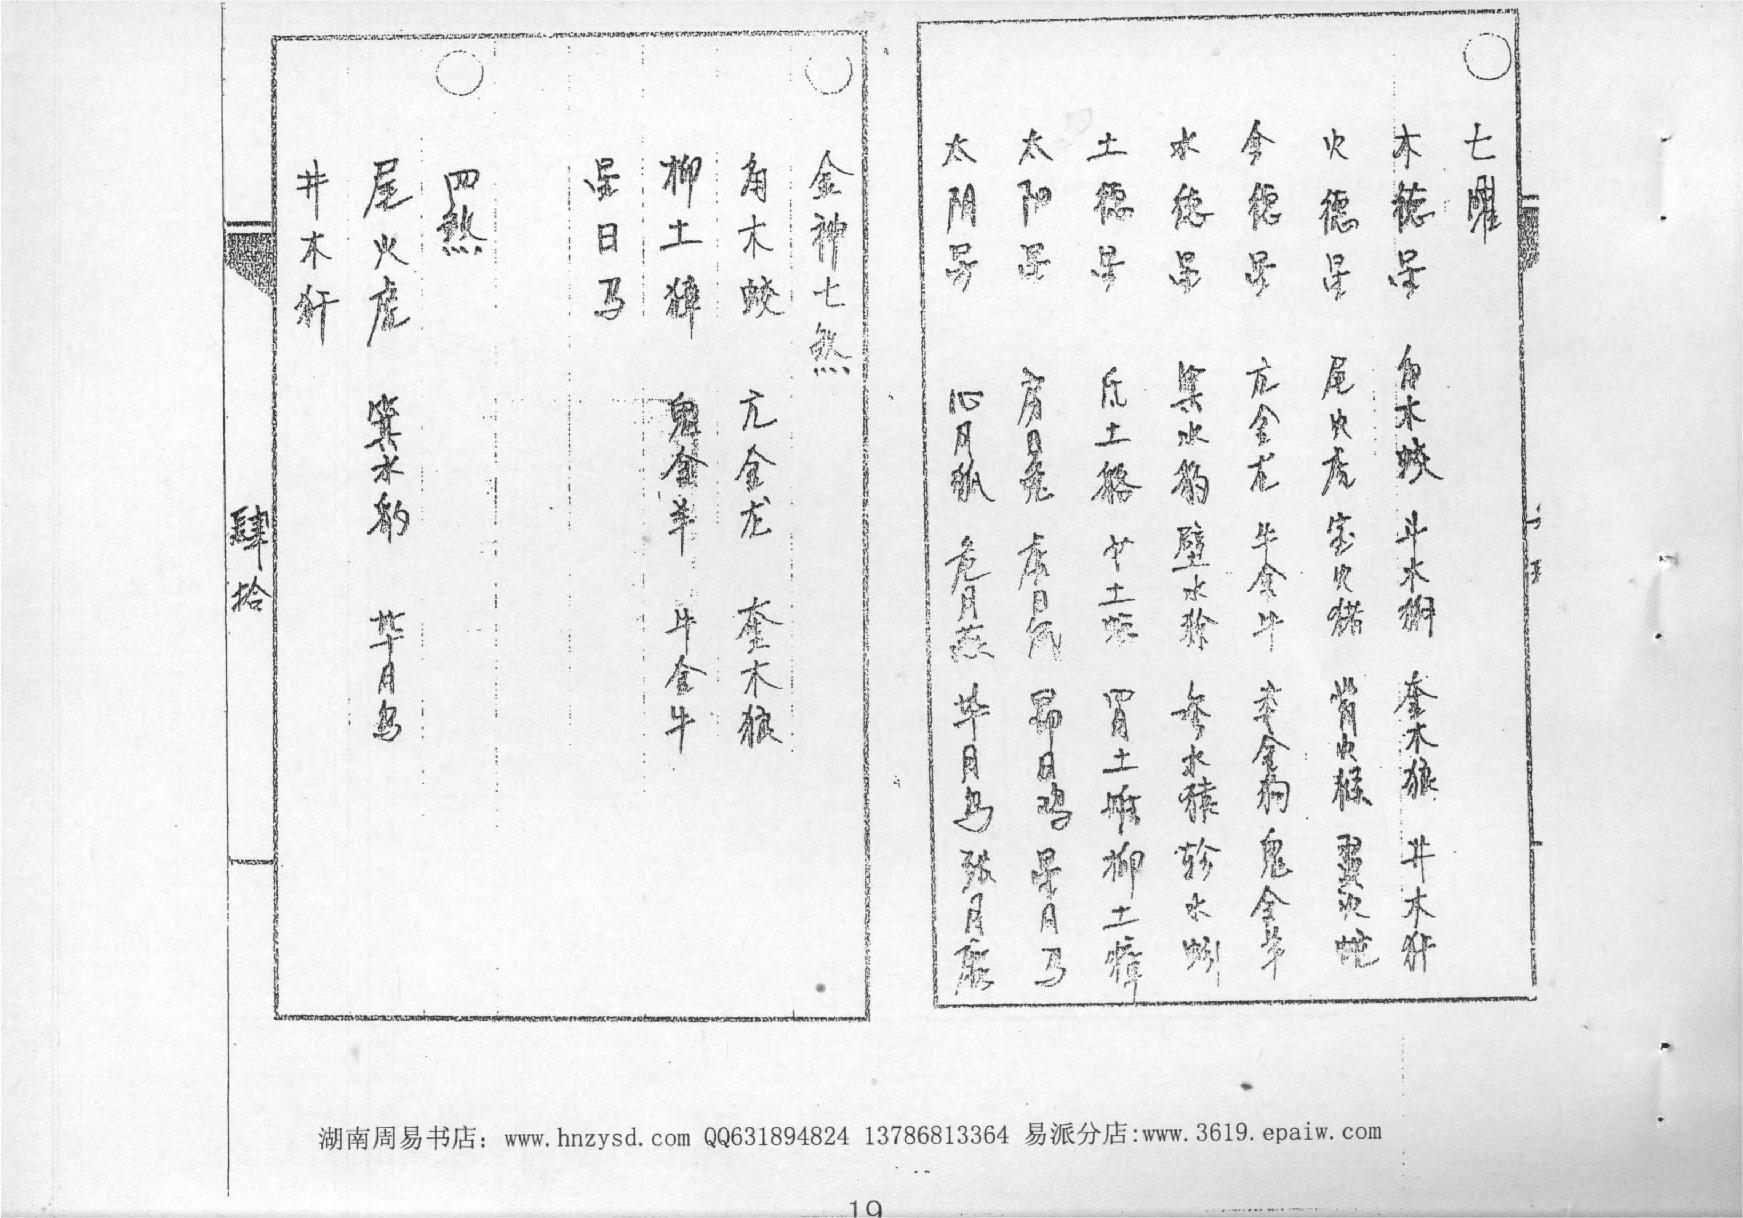 七曜
木德星 角木蛟 斗木獬 奎木狼 井木犴
火德星 尾火虎 室火猪 觜火猴 翼火蛇
金德星 亢金龙 牛金牛 娄金狗 鬼金羊
水德星 箕水豹 壁水貐 参水猿 轸水蚓
土德星 氐土貉 女土蝠 胃土雉 柳土獐
太阳星 房日兔 虚日鼠 昴日鸡 星日马
太阴星 心月狐 危月燕 毕月乌 张月鹿
金神七煞
角木蛟 亢金龙 奎木狼
柳土獐 鬼金羊 牛金牛
星日马
四煞
尾火虎 箕水豹 毕月乌
井木犴
肆拾
湖南周易书店：www.hnzysd.com QQ631894824 13786813364 易派分店:www.3619.epaiw.com
19